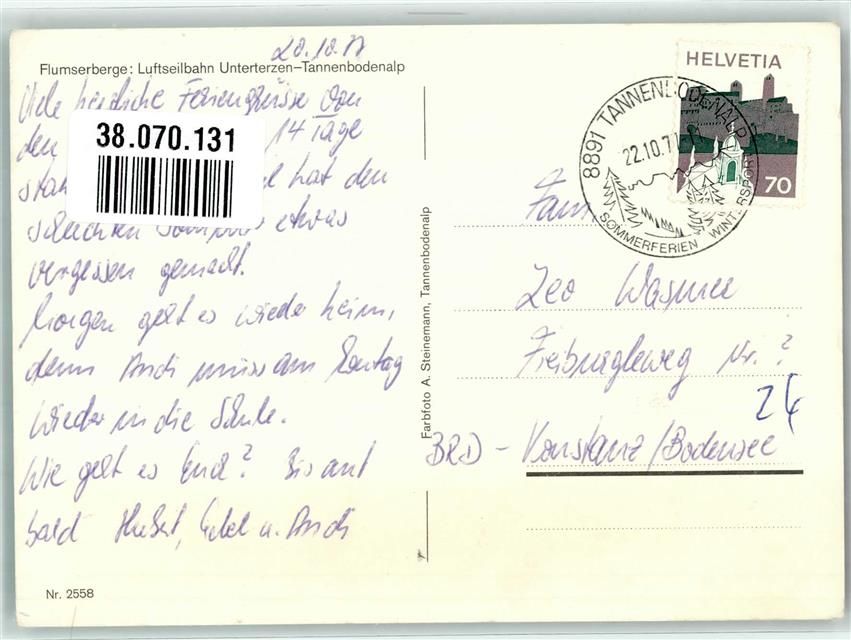 20.10.77
Flumserberge: Luftseilbahn Unterterzen–Tannenbodenalp
Viele herzliche Feriengrüsse von
den 14 Tage
38.070.131
hat den
schlechten Sommer etwas
vergessen gemacht.
Morgen geht es wieder heim,
denn Andi muss am
wieder in die Schule.
Wie geht es Euch? Bis auf
bald Hubert, u. Andi
Nr. 2558
Farbfoto A. Steinemann, Tannenbodenalp
HELVETIA
70
8891 TANNENBODENALP
22.10.7
SOMMERFERIEN WINTERSPORT
Fam.
Leo Wasmer
Freiburgleweg Nr. ?
24
BRD - Konstanz/Bodensee